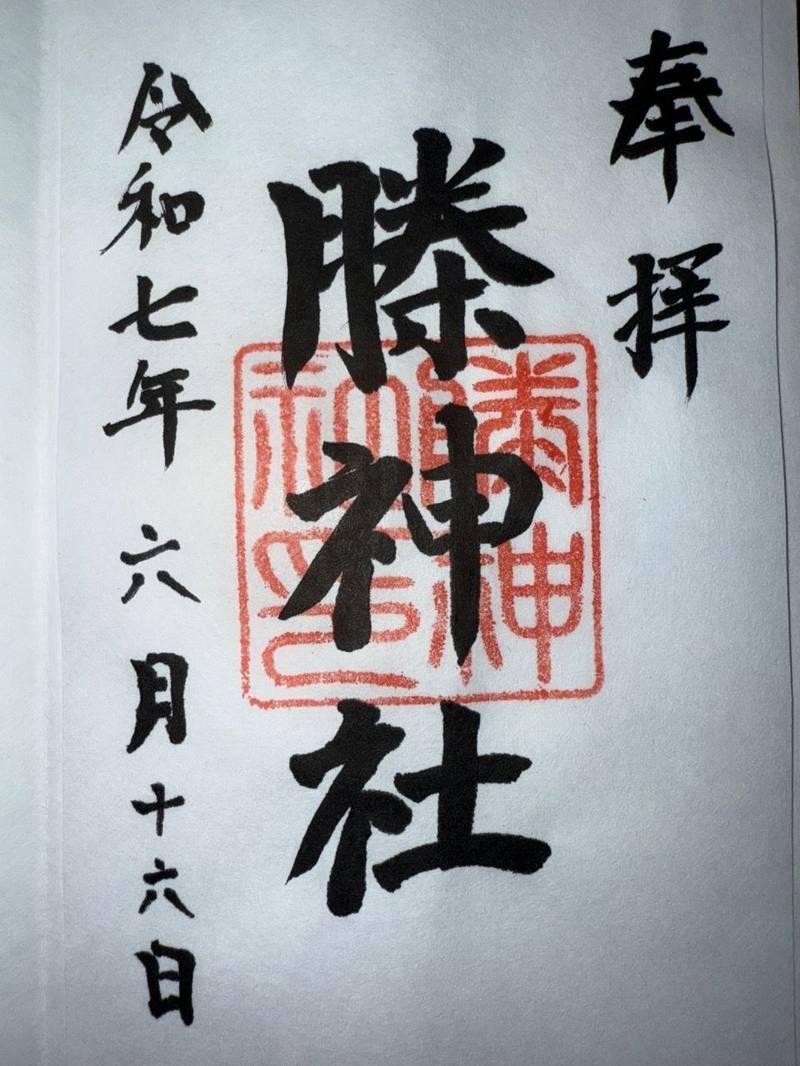 奉拝
榺神社
榺神
社印
令和七年六月十六日